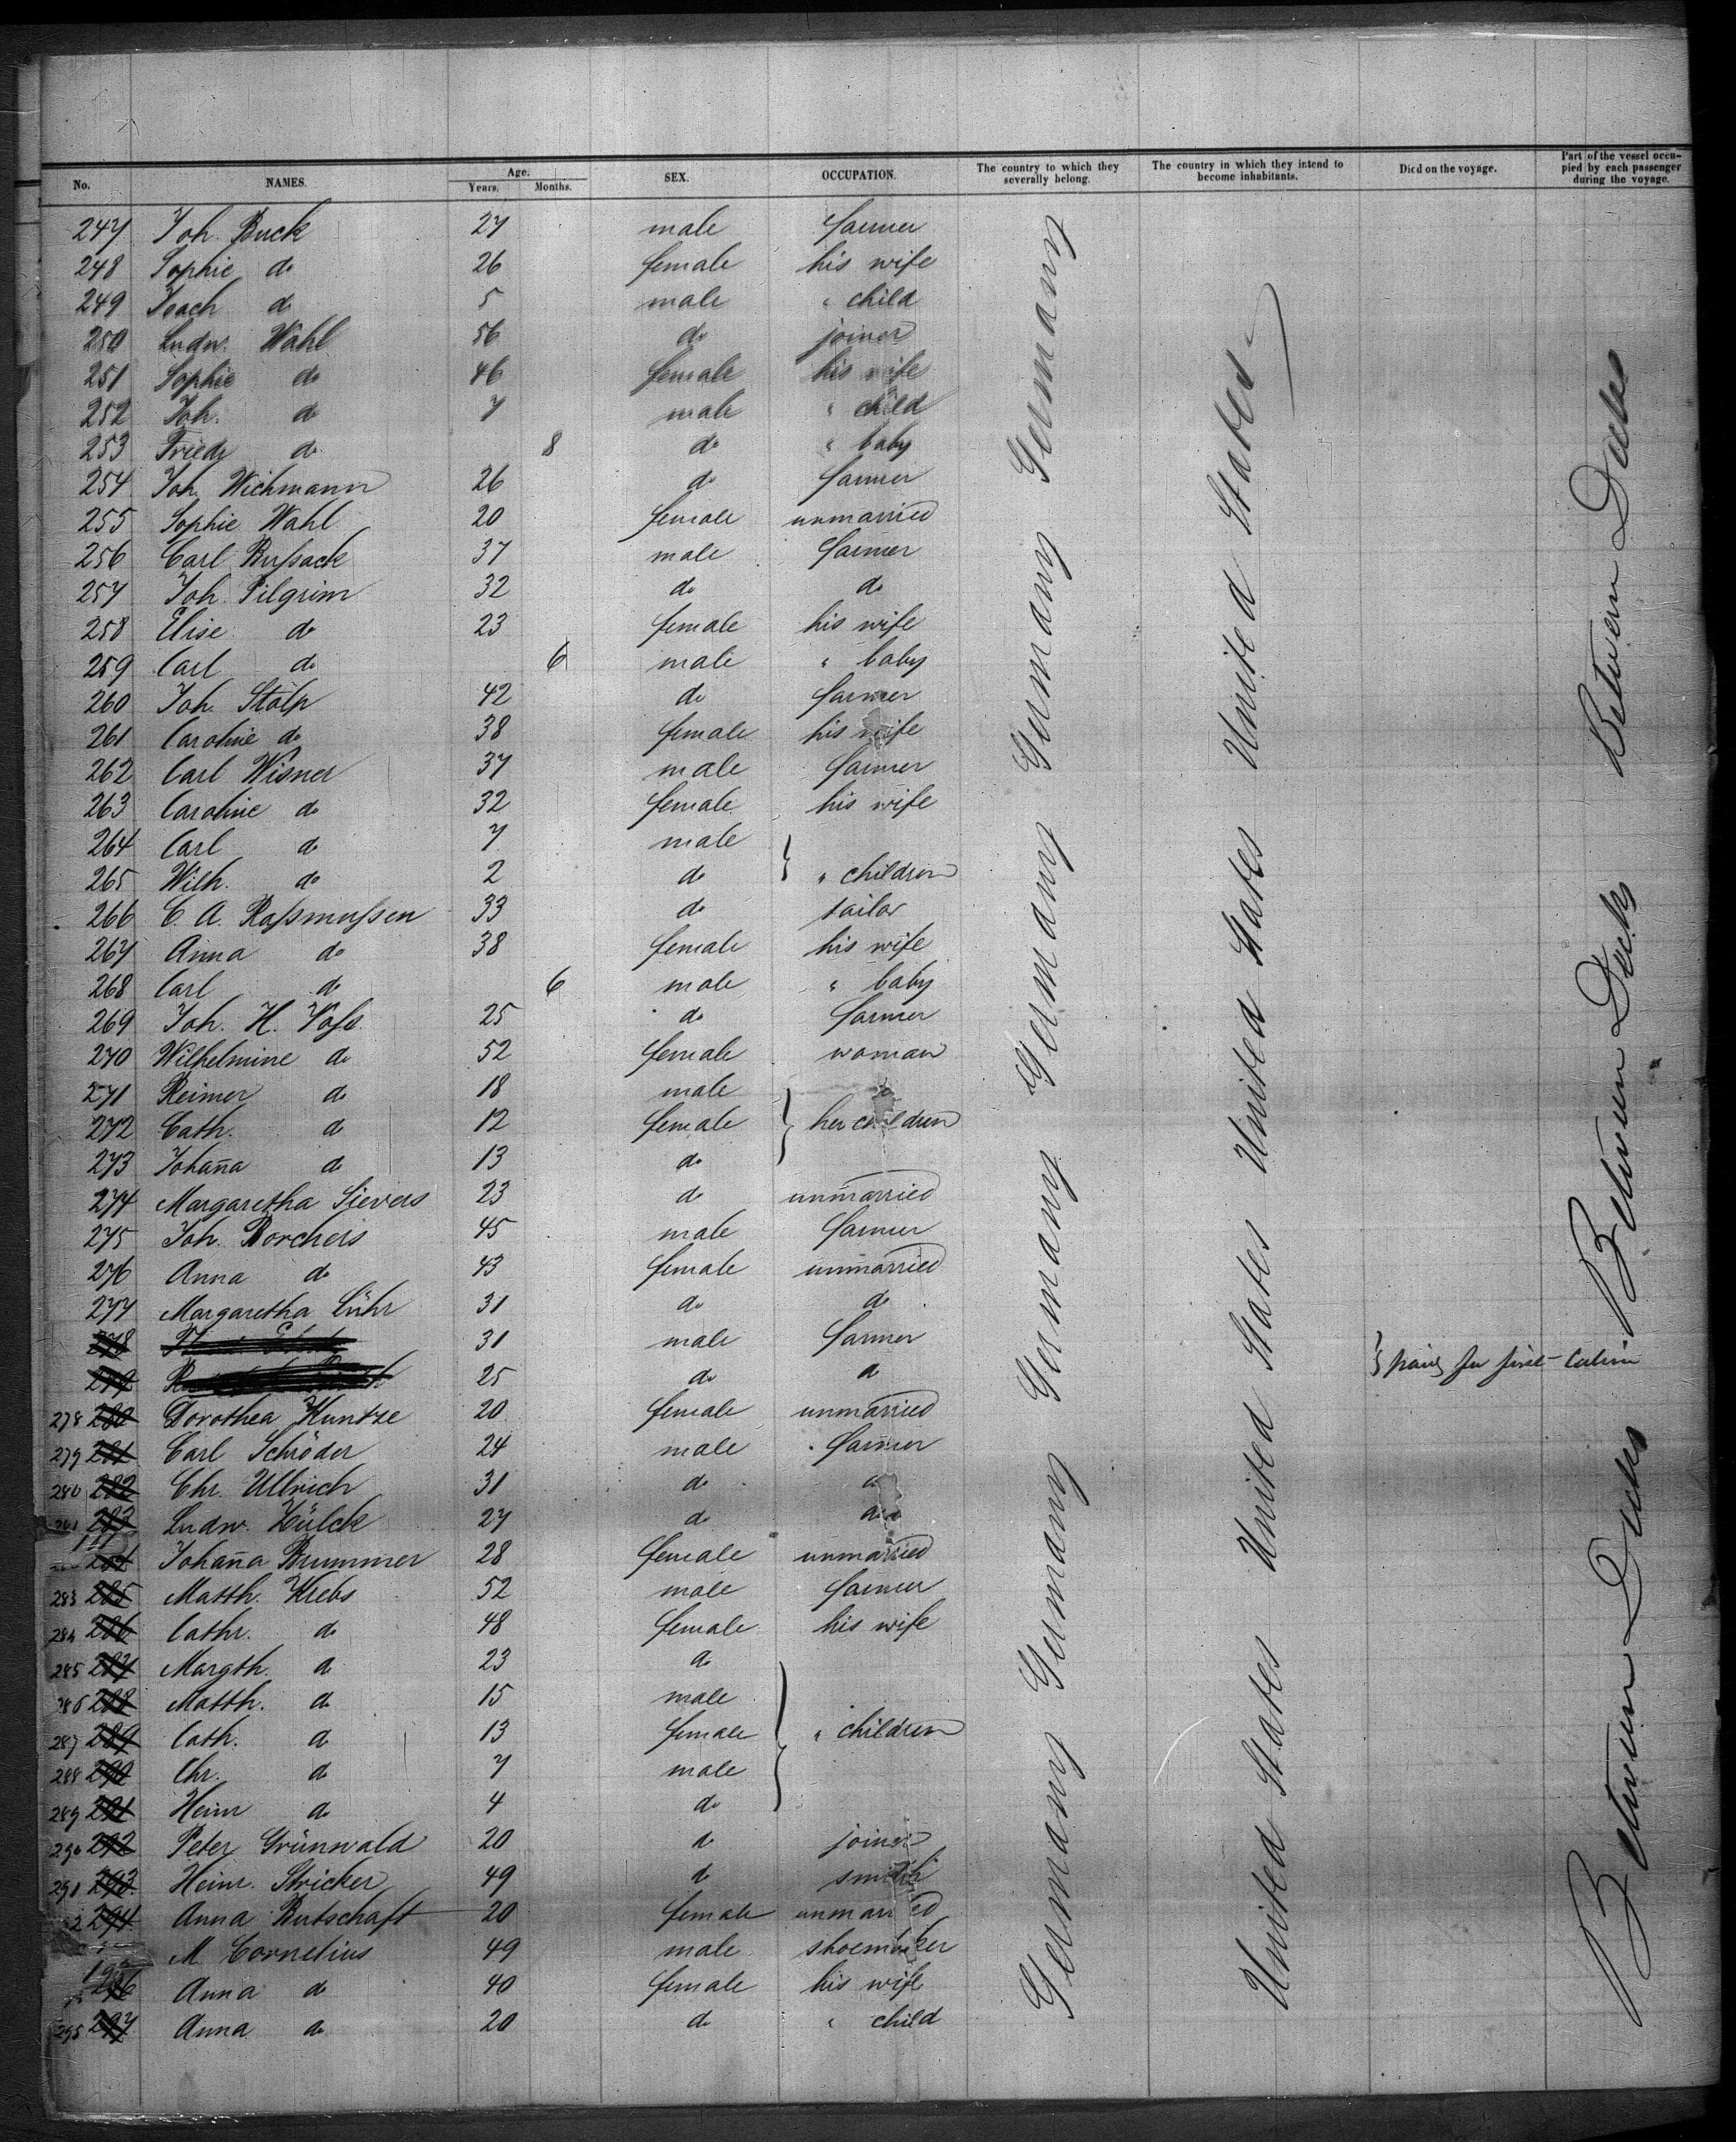 No. NAMES. Age. Years. Months. SEX. OCCUPATION. The country to which they severally belong. The country in which they intend to become inhabitants. Died on the voyage. Part of the vessel occupied by each passenger during the voyage.
247 Joh. Buck 27 male farmer
248 Sophie do 26 female his wife
249 Joach do 5 male " child
250 Ludw. Wahl 56 do joiner
251 Sophie do 46 female his wife
252 Joh. do 7 male " child
253 Friedr do 8 do " baby
254 Joh. Wichmann 26 do farmer
255 Sophie Wahl 20 female unmarried
256 Carl Bußack 37 male farmer
257 Joh. Pilgrim 32 do do
258 Elise do 23 female his wife
259 Carl do 6 male " baby
260 Joh. Stolp 42 do farmer
261 Caroline do 38 female his wife
262 Carl Wisner 37 male farmer
263 Caroline do 32 female his wife
264 Carl do 7 male
265 Wilh. do 2 do " children
266 C. A. Raßmußen 33 do tailor
267 Anna do 38 female his wife
268 Carl do 6 male " baby
269 Joh. H. Voß 25 do farmer
270 Wilhelmine do 52 female woman
271 Reimer do 18 male
272 Cath. do 12 female her children
273 Johan̄a do 13 do
274 Margaretha Sievers 23 do unmarried
275 Joh. Borchers 45 male farmer
276 Anna do 43 female unmarried
277 Margaretha Lühr 31 do do
278 31 male farmer
279 25 do do for first-Cabin
278 280 Dorothea Kuntze 20 female unmarried
279 281 Carl Schröder 24 male farmer
280 282 Chr. Ullrich 31 do do
281 283 Ludw. Hülck 27 do do
284 Johan̄a Brummer 28 female unmarried
283 285 Matth. Krebs 52 male farmer
284 286 Cathr. do 48 female his wife
285 287 Margth. do 23 do
286 288 Matth. do 15 male
287 289 Cath. do 13 female " children
288 290 Chr. do 7 male
289 291 Heinr do 4 do
290 292 Peter Grünwald 20 do joiner
291 293 Heinr. Stricker 49 do smith
2 294 Anna Butschaft 20 female unmarried
M. Cornelius 49 male shoemaker
296 Anna do 40 female his wife
295 297 Anna do 20 do " child
Germany Germany Germany Germany Germany Germany
United States United States United States United States
Between Decks Between Decks Between Decks